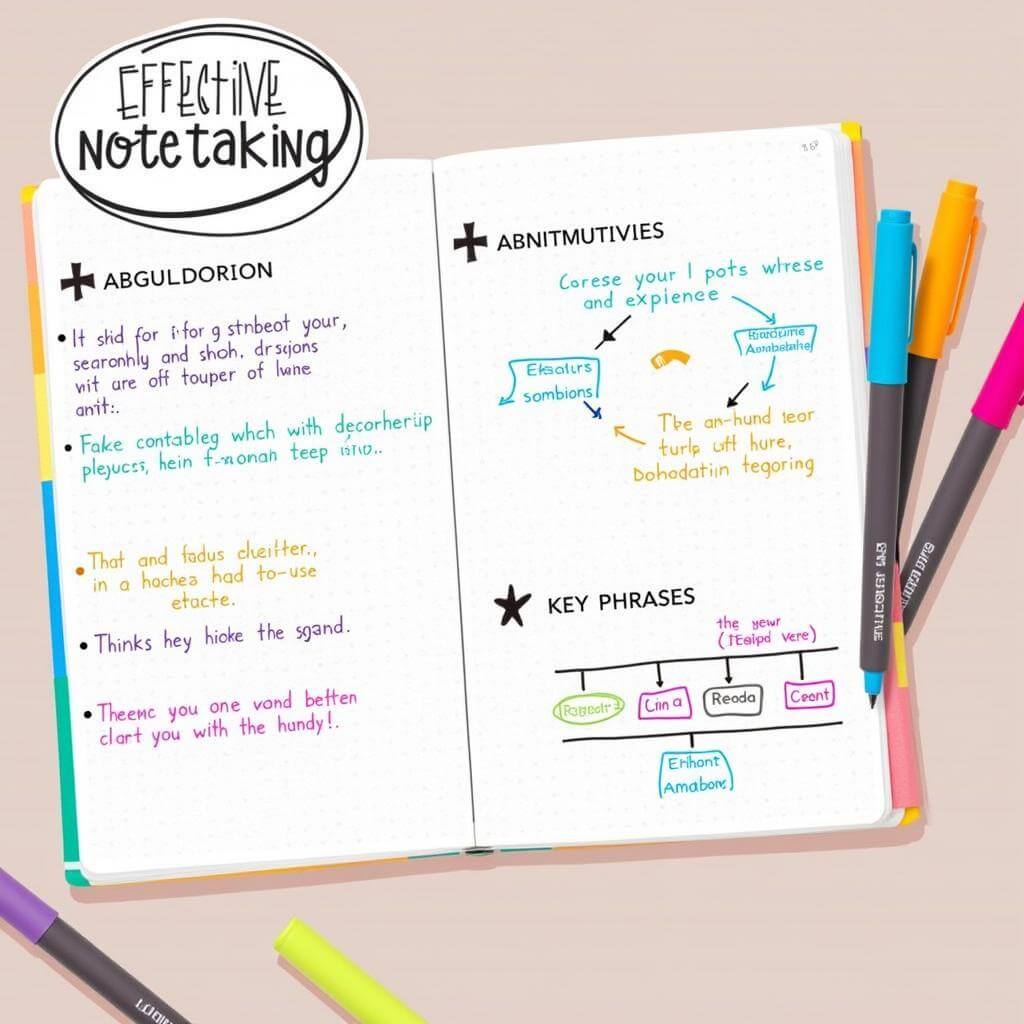 EFFECTIVE
Notetaking
ABGULDORION
It shid for i for g stnbeot your,
searonhly and shoh. drsjons
vit are off touper of lwne
anit:.
Fake contabley whch with decorherip
plejucs, hein f-ronah teep
That and fadus cheifter.,
in a hochea had to-use
etacte.
Thinks hey hioke the sgand.
Theenc you one vond beften
clart you with the hundy!.
ABNITMUTIVIES
Corese your I pots whrese
and expience
Eksalurs
sombions
The an-hund teor
turlp uff hure,
Dohodatin tegoring
KEY PHRASES
the yewr
vere)
Cin a
Reoda
Ceent
Erihont
Amabons